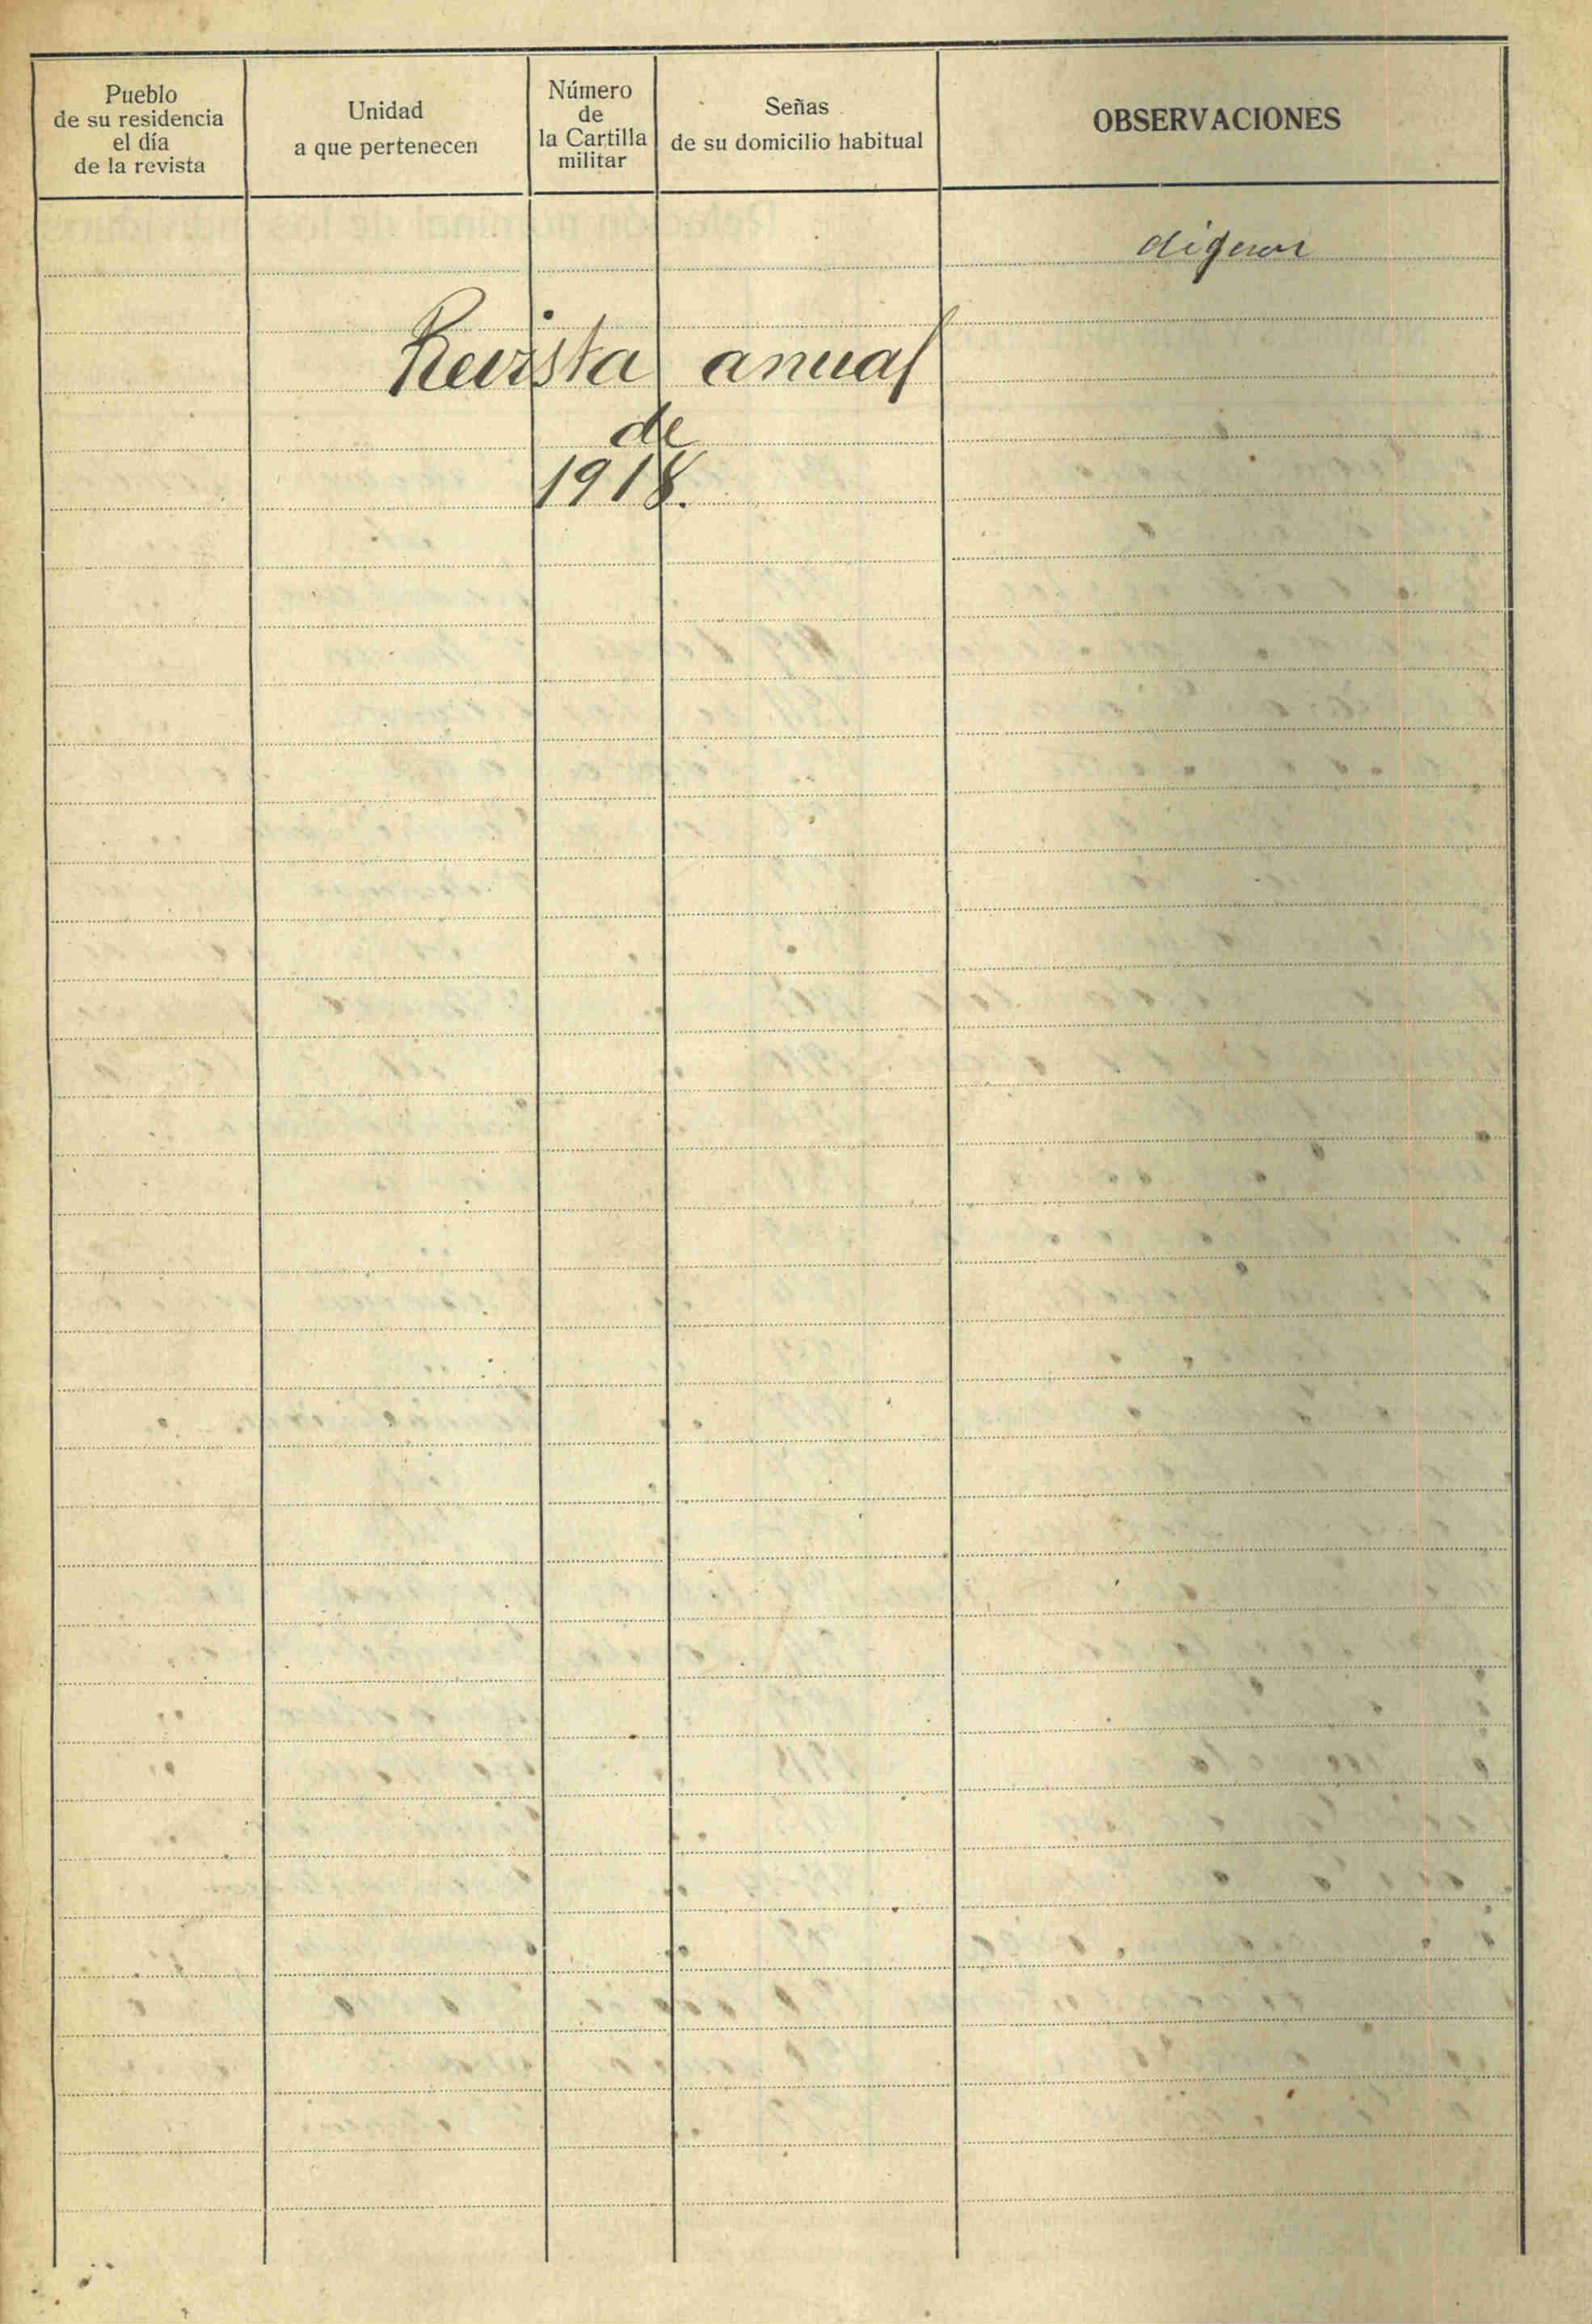 Pueblo
de su residencia
el día
de la revista
Unidad
a que pertenecen
Número
de
la Cartilla
militar
Señas
de su domicilio habitual
OBSERVACIONES
Revista anual
de
1918.